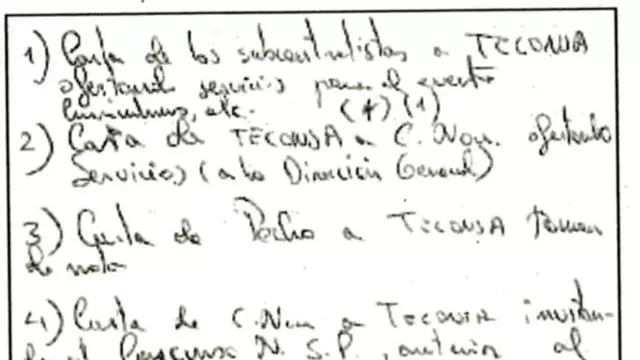 1) Carta de los subcontratistas a TECONSA
ofertando servicios para el evento
Curriculums, etc. (4) (1)
2) Carta de TECONSA a C. Nou. ofertando
Servicios (a la Dirección General)
3) Carta de Pedro a TECONSA toman
de nota
4) Carta de C. Nou a TECONSA invitan-
N. S. P., anterior al